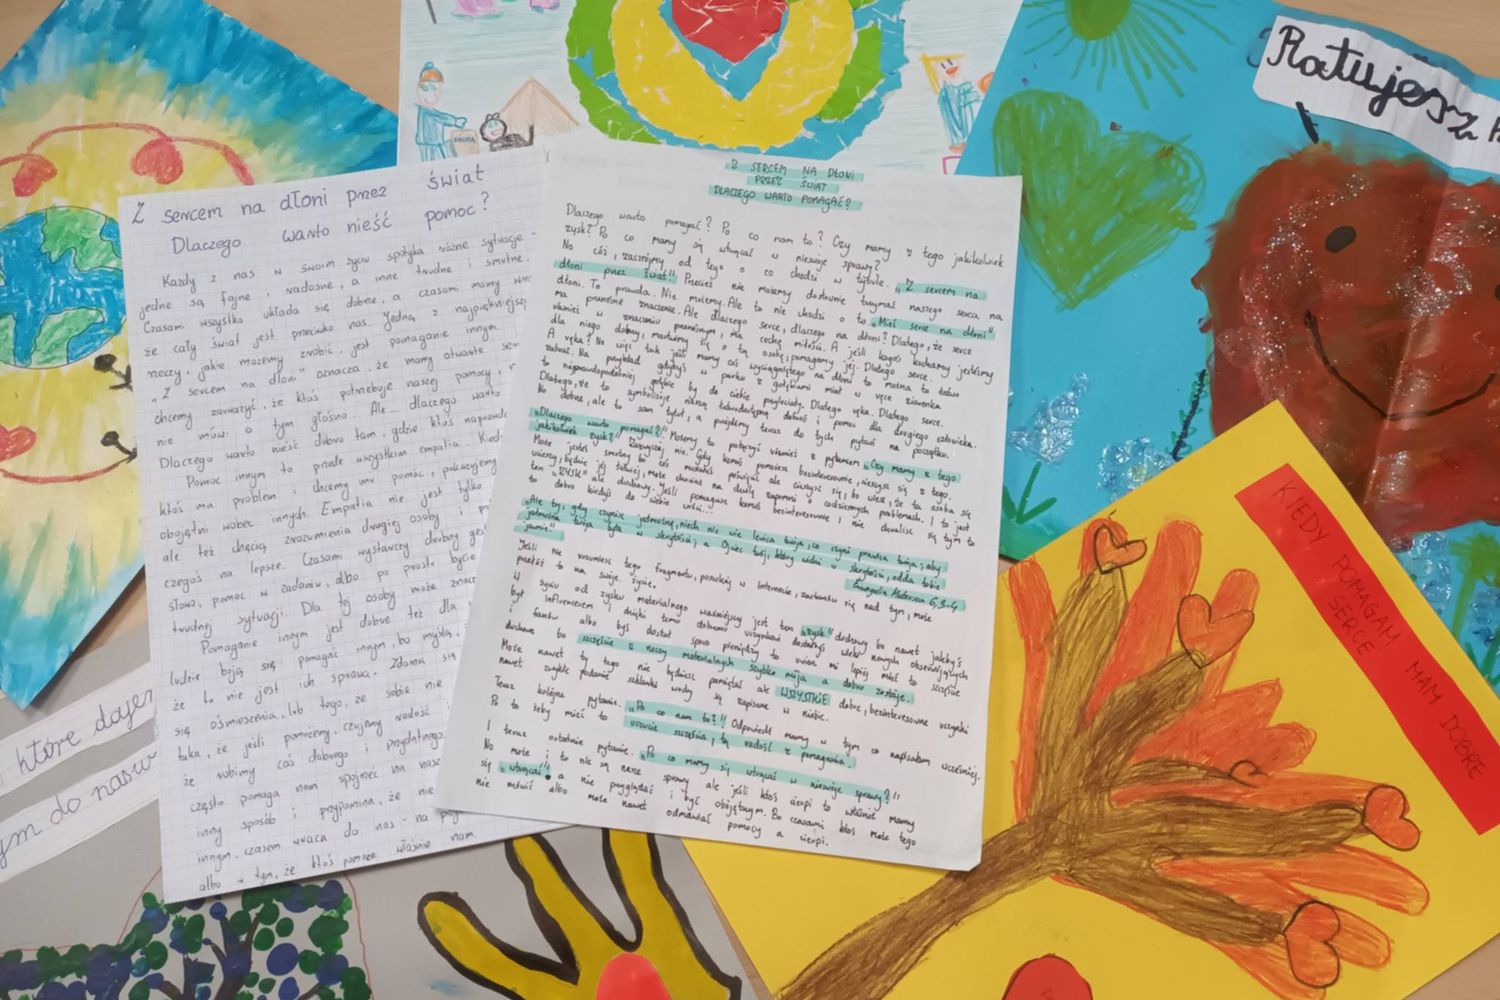 Ratujesz
Z sercem na dłoni przez świat
Dlaczego warto nieść pomoc?
Każdy z nas w swoim życiu spotyka różne sytuacje -
jedne są fajne, radosne, a inne trudne i smutne.
Czasami wszystko układa się dobrze, a czasami mamy
że cały świat jest przeciwko nas. Jedną z najpiękniejszy
rzeczy, jakie możemy zrobić, jest pomaganie innym.
"Z sercem na dłoni" oznacza, że mamy otwarte
chcemy zauważyć, że ktoś potrzebuje naszej pomocy,
nie mówi o tym głośno. Ale... dlaczego warto
Dlaczego warto nieść dobro tam, gdzie ktoś naprawdę
Pomoc innym to przede wszystkim empatia. Kiedy
ktoś ma problem i chcemy mu pomóc, pokazujemy
obojętni wobec innych. Empatia nie jest tylko
ale też chęcią zrozumienia drugiej osoby i
czegoś na lepsze. Czasami wystarczy drobny gest
słowo, pomoc w zadaniu, albo po prostu bycie
trudnej sytuacji. Dla tej osoby może znacz
Pomaganie innym jest dobre też dla
ludzie boją się pomagać innym, bo myślą,
że to nie jest ich sprawa. Zdarza się
się ośmieszenia, lub tego, że sobie nie
taka, że jeśli pomożemy, czujemy radość i
że robimy coś dobrego i przydatnego.
często pomaga nam spojrzeć na nasz
inny sposób i przypomina, że nie
innym, czasem wraca do nas - na
albo w tym, że ktoś pomoże właśnie nam.
Z SERCEM NA DŁONI
PRZEZ ŚWIAT
DLACZEGO WARTO POMAGAĆ?
Dlaczego warto pomagać? Po co nam to? Czy mamy z tego jakikolwiek
zysk? Po co mamy się wtrącać w nieswoje sprawy?
No cóż, zacznijmy od tego o co chodzi w tytule. "Z sercem na
dłoni przez świat!" Przecież nie możemy dosłownie trzymać naszego serca na
dłoni. To prawda. Nie możemy. Ale to nie chodzi o to. "Mieć serce na dłoni",
ma przenośne znaczenie. Ale dlaczego serce, dlaczego na dłoni? Dlatego, że serce
również w znaczeniu przenośnym, ma cechę miłości. A jeśli kogoś kochamy jesteśmy
dla niego dobrzy, martwimy się o tą osobę, pomagamy jej. Dlatego serce.
A ręka? No więc tak jeśli mamy coś wyciągniętego na dłoni to można to łatwo
zabrać. Na przykład gdybyś w parku z gołębiami miał w ręce ziarenka
to najprawdopodobniej gołębie by do ciebie przyleciały. Dlatego ręka. Dlatego serce.
Dlatego, że to symbolizuje naszą dobroduszną dobroć i pomoc dla drugiego człowieka.
No dobrze, ale to sam tytuł, a przejdźmy teraz do tych pytań na początku.
"Dlaczego warto pomagać?" Możemy to połączyć również z pytaniem "Czy mamy z tego
jakikolwiek zysk?" Zazwyczaj nie. Gdy komuś pomożesz bezinteresownie, cieszysz się z tego.
Może jesteś smutny bo coś musiałeś poświęcić ale cieszysz się, bo wiesz, że ta osoba się
ucieszy, będzie jej łatwiej, może chociaż na chwilę zapomni o codziennych problemach. I to jest
ten "ZYSK" ale duchowy. Jeśli pomagasz komuś bezinteresownie i nie chwalisz się tym to
to dobro kiedyś do ciebie wróci...
"Ale ty, gdy czynisz jałmużnę, niech nie wie lewica twoja, co czyni prawica twoja, aby
jałmużna twoja była w skrytości, a Ojciec twój, który widzi w skrytości, odda tobie
jawnie."
Ewangelia Mateusza 6, 3-4
Jeśli nie rozumiesz tego fragmentu, poszukaj w Internecie, zastanów się nad tym, może
przełóż to na swoje życie.
W życiu od zysku materialnego ważniejszy jest ten "zysk" duchowy bo nawet jakbyś
był influencerem i dzięki temu dobremu uczynkowi dostałbyś wiele nowych obserwujących
i fanów albo byś dostał sporo pieniędzy to uwierz mi lepiej mieć to szczęście
duchowe bo szczęście z rzeczy materialnych szybko mija a dobro zostaje.
Może nawet ty tego nie będziesz pamiętał ale WSZYSTKIE dobre, bezinteresowne uczynki
nawet zwykłe podanie szklanki wody są zapisane w niebie.
Teraz kolejne pytanie. "Po co nam to?" Odpowiedź mamy w tym co napisałam wcześniej.
Po to żeby mieć to uczucie szczęścia, tą radość z pomagania.
I teraz ostatnie pytanie. "Po co mamy się wtrącać w nieswoje sprawy?"
No może i to nie są nasze sprawy ale jeśli ktoś cierpi to właśnie mamy
się "wtrącać" a nie przyglądać i być obojętnym. Bo czasami ktoś może tego
nie mówić albo może nawet odmawiać pomocy a cierpi.
KIEDY POMAGAM MAM DOBRE
SERCE
, które dajem
ym do nas w